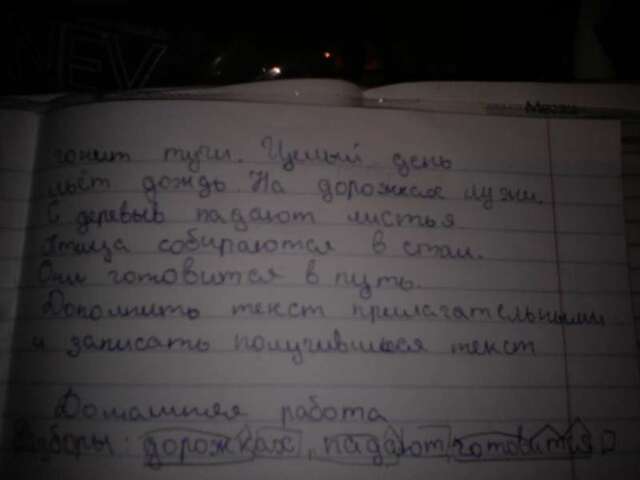 NEV
гонит тучи. Целый день
льёт дождь. На дорожках лужи.
С деревьв падают листья
Птица собираются в стаи.
Они готовится в путь.
Дополнить текст прилагательными
и записать получившийся текст
Домашняя работа
дорожках, падают, готовится